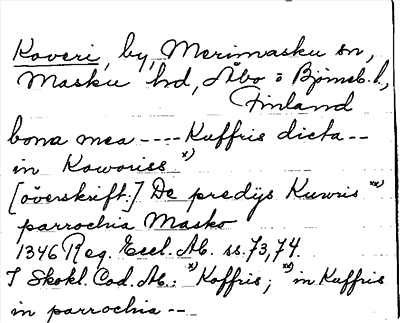 Koveri, by, Merimasku sn,
Masku hd, Åbo o Björneb. l.,
Finland
bona mea ---- Kuffris dicta --
in Koworiss x)
[överskrift:] De predijs Kuwris xx)
parrochia Masko
1346 Reg. Eccl. Ab. ss. 73, 74.
I Skokl. Cod. Ab.: x) Koffris; xx) in Kuffris
in parrochia --